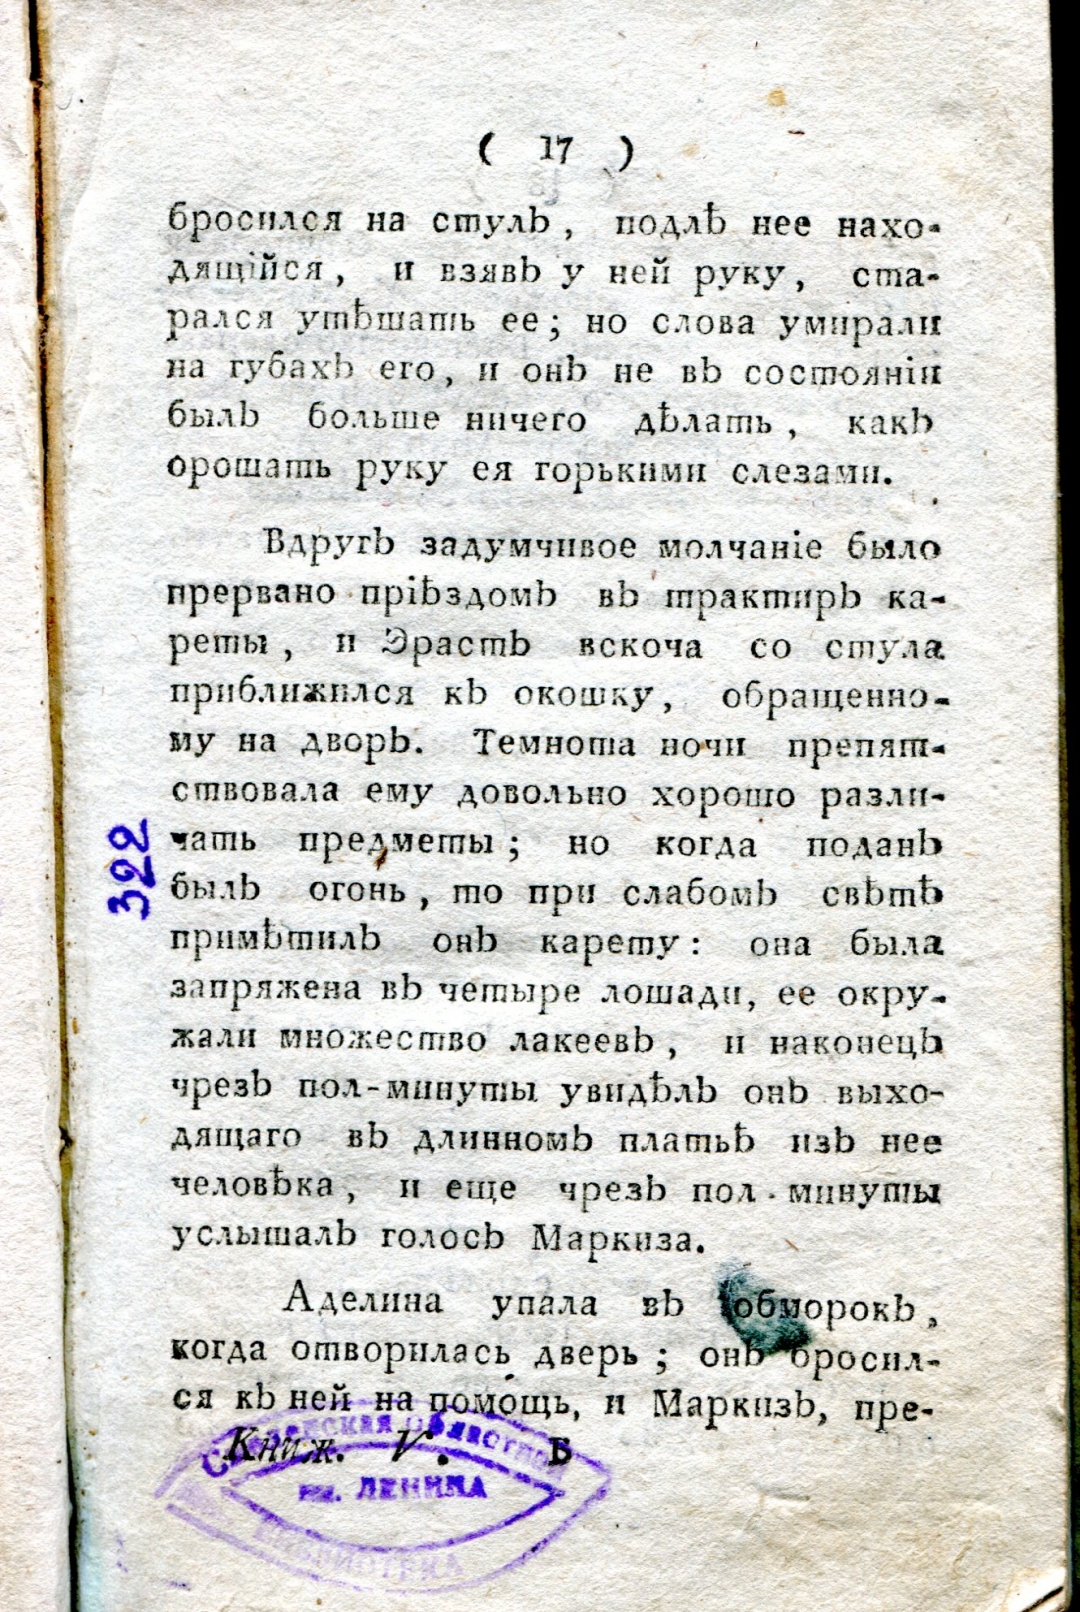 ( 17 )
бросился на стулъ, подлѣ нее нахо-
дящійся, и взявъ у ней руку, ста-
рался утѣшать ее; но слова умирали
на губахъ его, и онъ не въ состояніи
былъ больше ничего дѣлать, какъ
орошать руку ея горькими слезами.
Вдругъ задумчивое молчаніе было
прервано пріѣздомъ въ трактиръ ка-
реты, и Эрастъ вскоча со стула
приближился къ окошку, обращенно-
му на дворъ. Темнота ночи препят-
ствовала ему довольно хорошо разли-
чать предметы; но когда поданъ
былъ огонь, то при слабомъ свѣтѣ
примѣтилъ онъ карету: она была
запряжена въ четыре лошади, ее окру-
жали множество лакеевъ, и наконецъ
чрезъ пол-минуты увидѣлъ онъ выхо-
дящаго въ длинномъ платьѣ изъ нее
человѣка, и еще чрезъ пол-минуты
услышалъ голосъ Маркиза.
Аделина упала въ обморокъ,
когда отворилась дверь; онъ бросил-
ся къ ней на помощь, и Маркизъ, пре-
Книж. V. Б
322
областной
им. ЛЕНИНА
БИБЛИОТЕКА